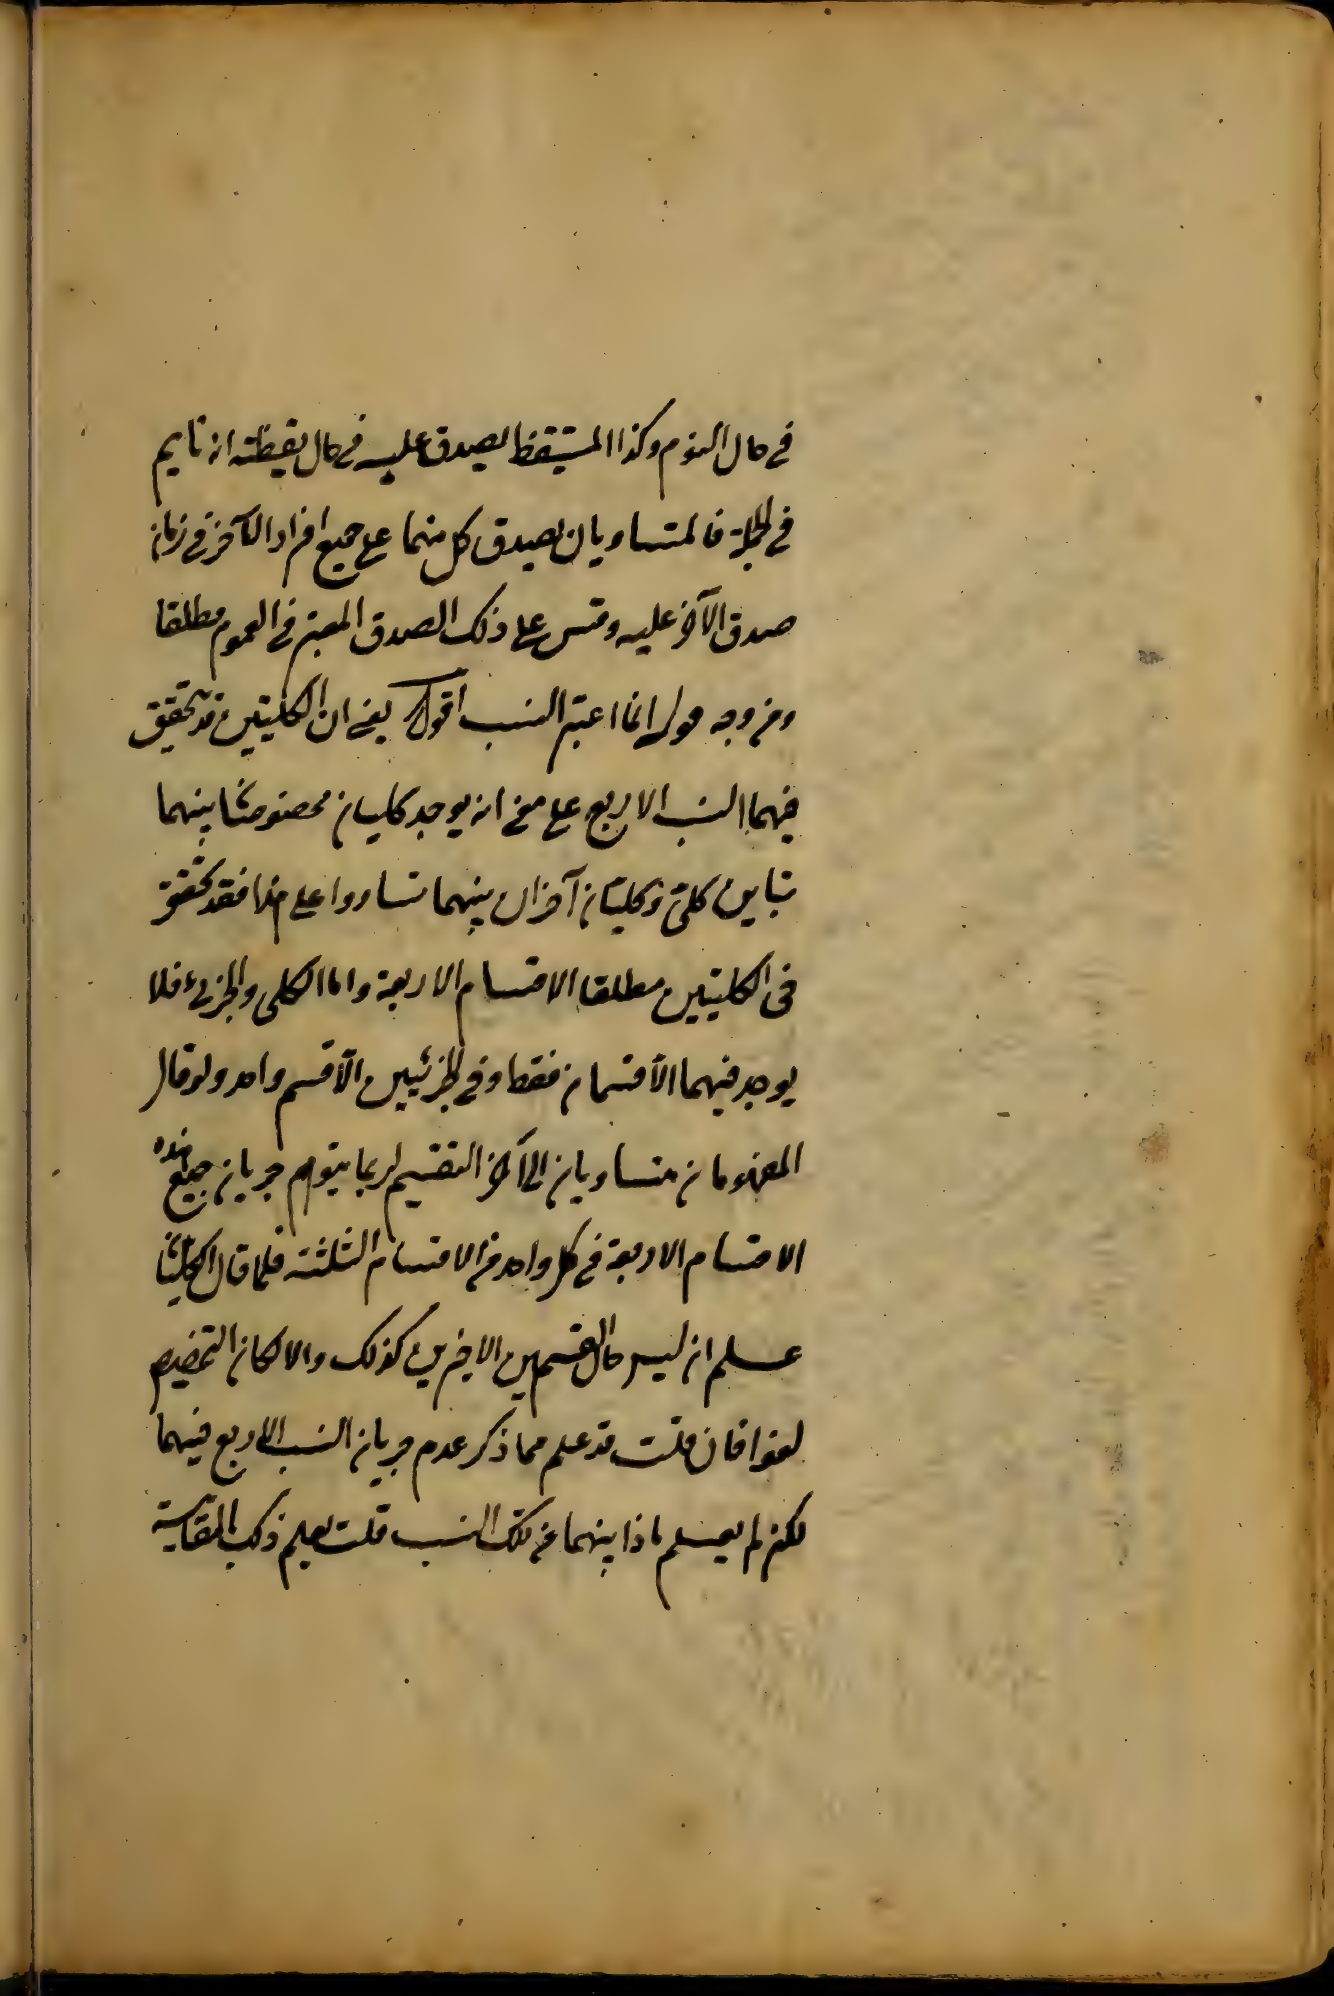 في حال النوم وكذا المستيقظ يصدق عليه في حال يقظته انه نايم
في الجملة فالمتساويان يصدق كل منهما على جميع افراد الآخر في زمان
صدق الآخر عليه وقس على ذلك الصدق المعتبر في العموم مطلقا
ومن وجه قوله انما اعتبر النسب اقول يعني ان الكليتين قد تحقق
فيهما النسب الاربع على معنى انه يوجد كليان مخصوصتا بينهما
تباين كلي وكليتان آخران بينهما تساو وعلى هذا فقد تحقق
في الكليتين مطلقا الاقسام الاربعة واما الكلي والجزئي فلا
يوجد فيهما الا قسمان فقط وفي الجزئيين الا قسم واحد ولو قال
المفهومان متساويان الى آخر التقسيم لربما يتوهم جريان جميع هذه
الاقسام الاربعة في كل واحد من الاقسام الثلثة فلما قال الكليتان
علم ان ليس حال القسمين الاخيرين كذلك والا لكان التخصيص
لغوا فان قلت قد علم مما ذكر عدم جريان النسب الاربع فيهما
لكن لم يعلم ماذا بينهما من تلك النسب قلت يعلم ذلك بالمقايسة